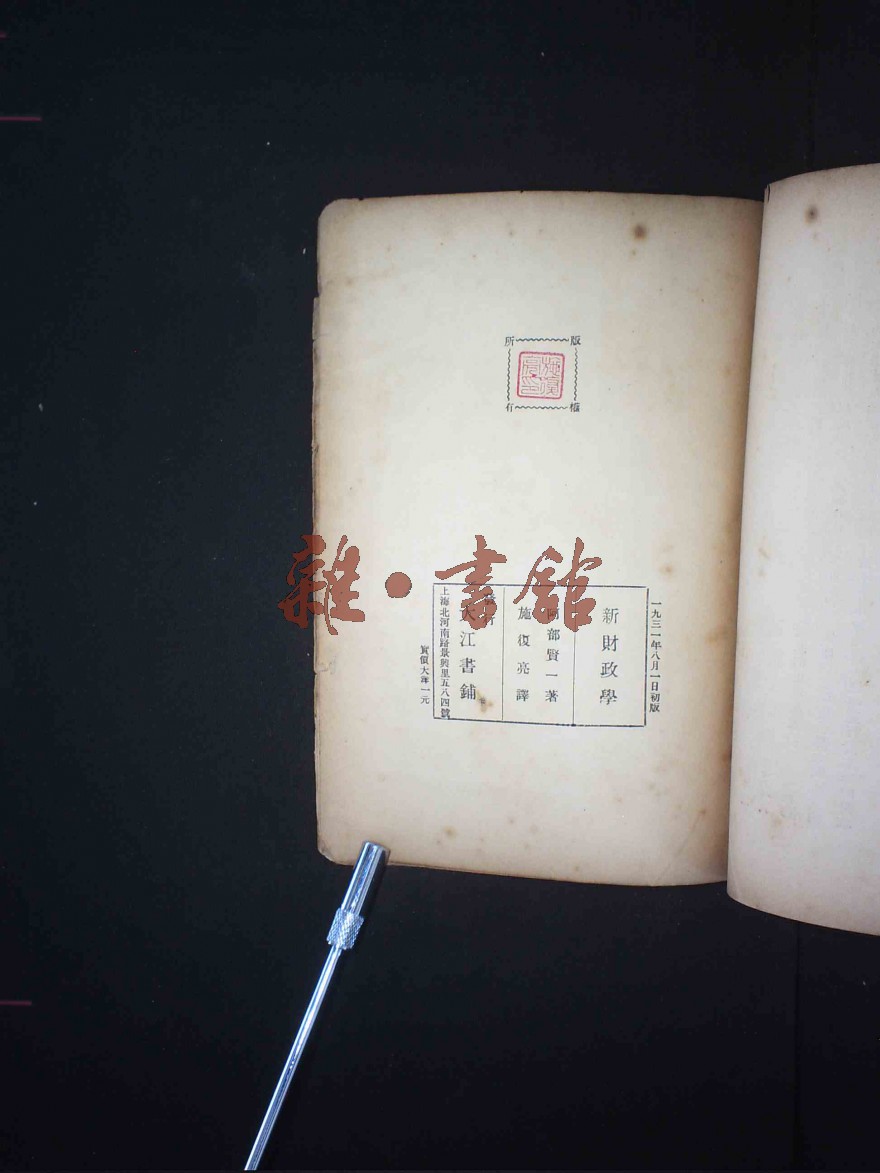 版權所有
施復亮印
一九三一年八月一日初版
新財政學
阿部賢一著
施復亮譯
發行
大江書鋪
上海北河南路景興里五八四號
實價大洋一元
雜·書館